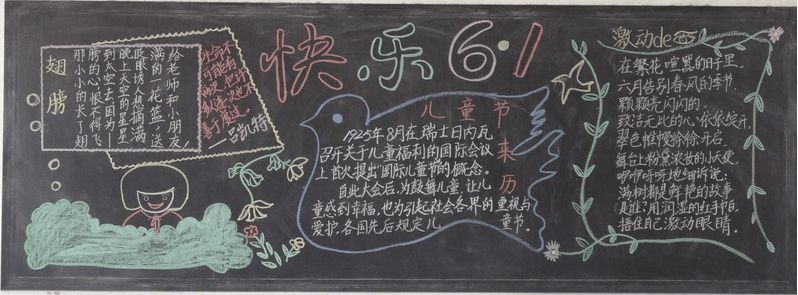 快乐6·1
翅膀
给老师和小朋友,
满的一花篮,送
眨眼诱人想摘满
晚上天空的星星
到太空去,因为一
膀的心,恨不得飞
那小小的长了翅
一吕凯特
儿童节来历
1925年8月在瑞士日内瓦
召开关于儿童福利的国际会议
上首次提出国际儿童节的概念。
自此大会后,为鼓舞儿童,让儿
童感到幸福,也为引起社会各界的重视与
爱护,各国先后规定儿童节。
激动de
在繁花喧嚣的日子里
六月告别春风的季节
颗颗亮闪闪的
致洁无比的心依依绽开
翠色帷幔徐徐开启
舞台上粉黛浓妆的小天使
咿咿呀呀地细听说:
满树都是鲜艳的故事
是谁:用润湿的红手帕
捂住自己激动眼睛.